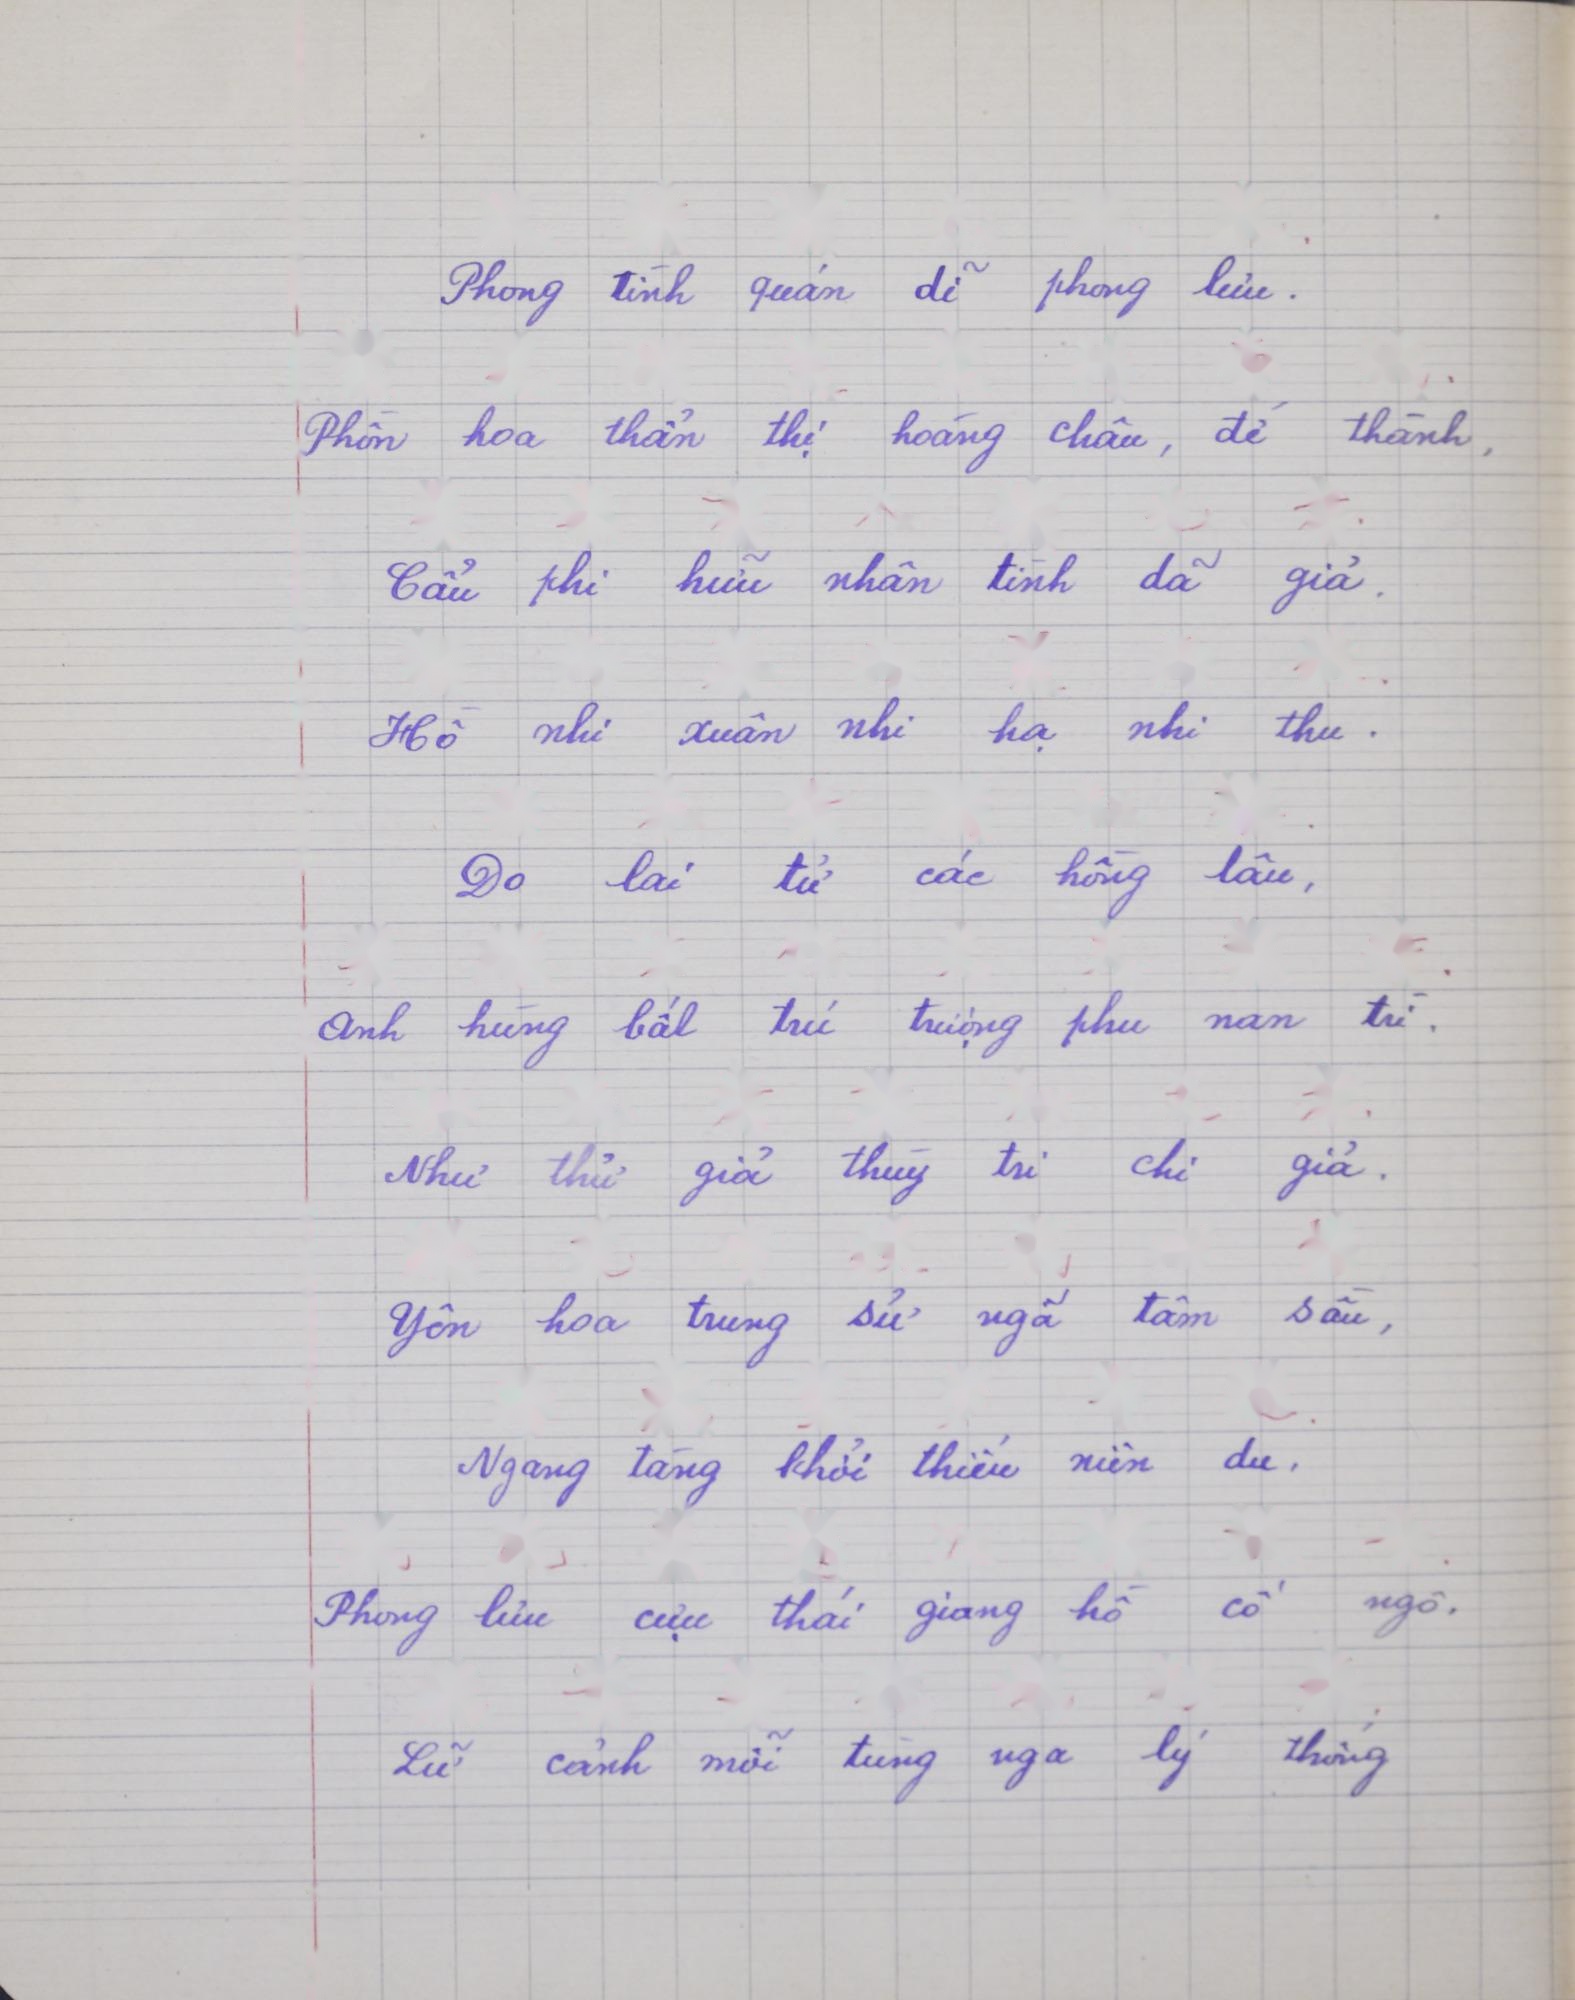 Phong tình quán dĩ phong lưu.
Phồn hoa thẩn thị hoàng châu, đế thành,
Cẩu phi hữu nhân tình dã giả.
Hồ nhi xuân nhi hạ nhi thu.
Do lai tử các hồng lâu,
Anh hùng bất trú trượng phu nan trì.
Như thử giả thùy tri chi giả.
Yên hoa trung sử ngã tâm sầu,
Ngang tàng khởi thiếu niên du.
Phong lưu cựu thái giang hồ cố ngô.
Lữ cảnh mỗi tùng nga lý thống